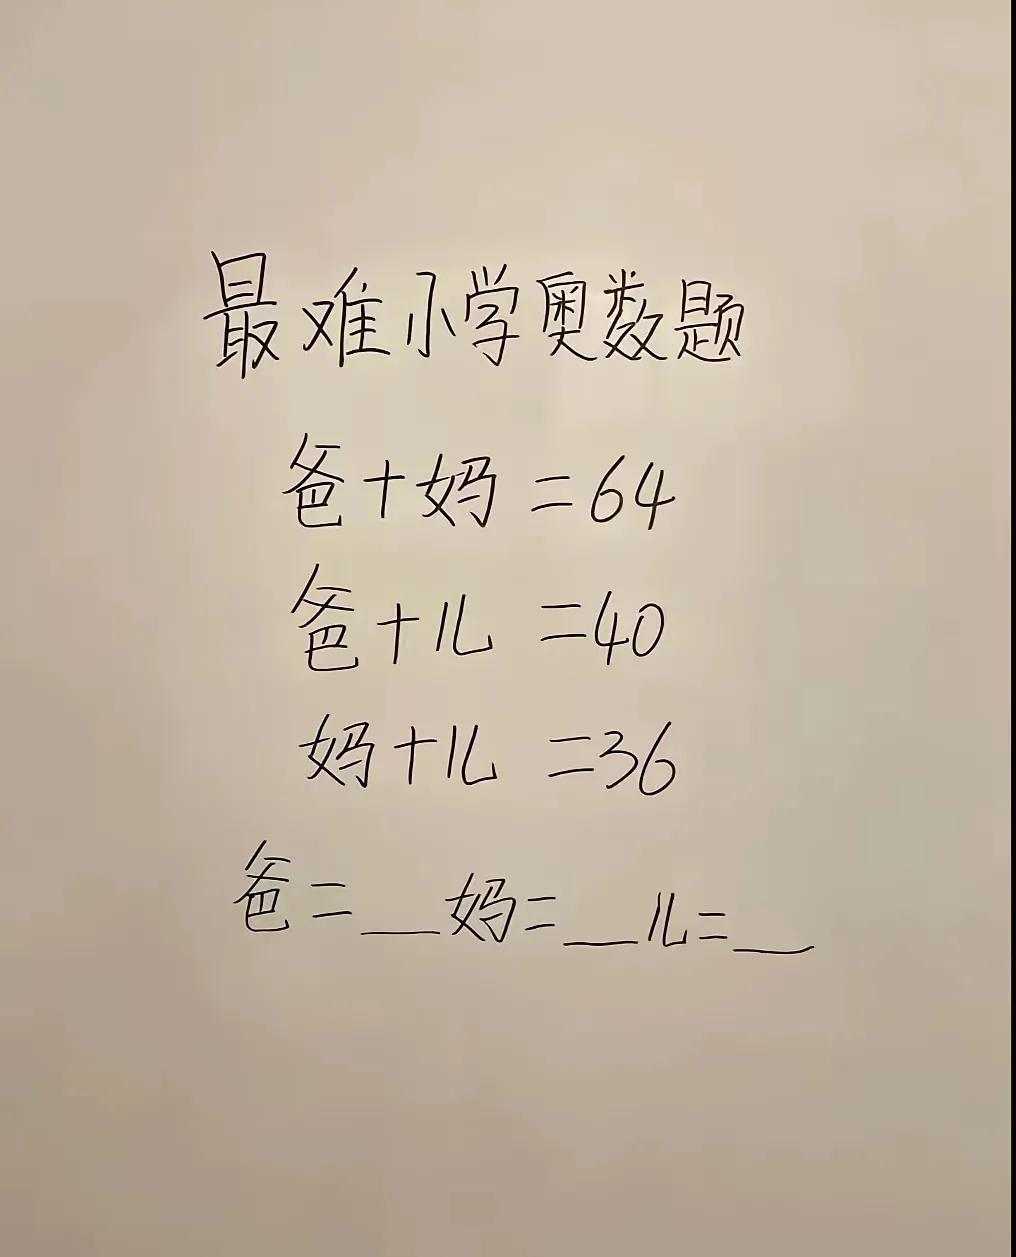 最难小学奥数题
爸+妈=64
爸+儿=40
妈+儿=36
爸=__妈=__儿=__